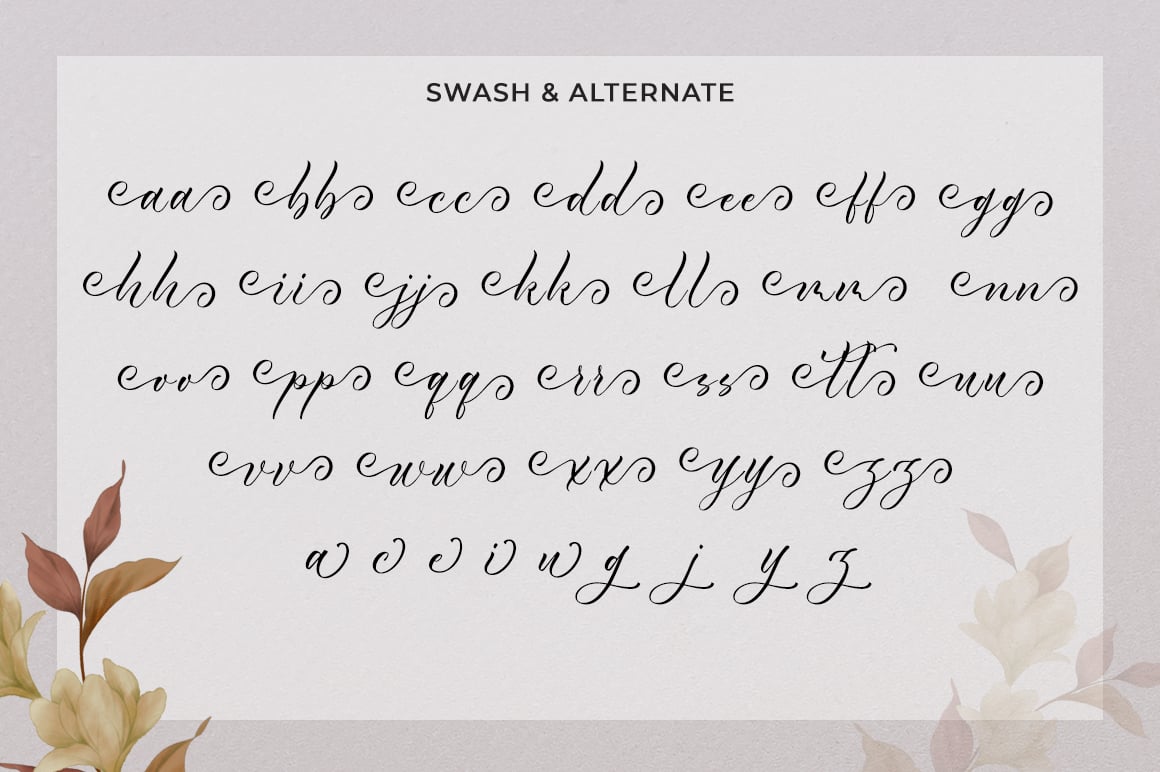 SWASH & ALTERNATE
aa bb cc dd ee ff gg
hh ii jj kk ll mm nn
oo pp qq rr ss tt uu
vv ww xx yy zz
a c e i w g j y z